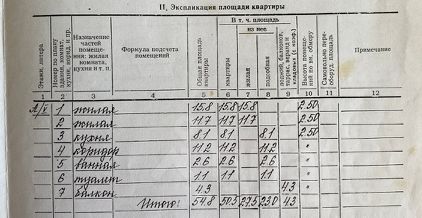 II. Экспликация площади квартиры
Этажи, литера
Номер по плану
Назначение частей помещения: жилая комната, кухня и т. п.
Формула подсчета помещений
Общая площадь квартиры
В т. ч. площадь
из нее
квартиры
жилая
подсобная
Примечание
1 2 3 4 5 6 7 8 9 10 11 12
1 жилая 15.8 15.8 15.8 2.50
2 жилая 11.7 11.7 11.7 2.50
3 кухня 8.1 8.1 8.1 2.50
4 коридор 11.2 11.2 11.2 "
5 ванная 2.6 2.6 2.6 "
6 туалет 1.1 1.1 1.1 "
7 балкон 4.3 4.3 "
Итого: 54.8 50.5 27.5 23.0 4.3